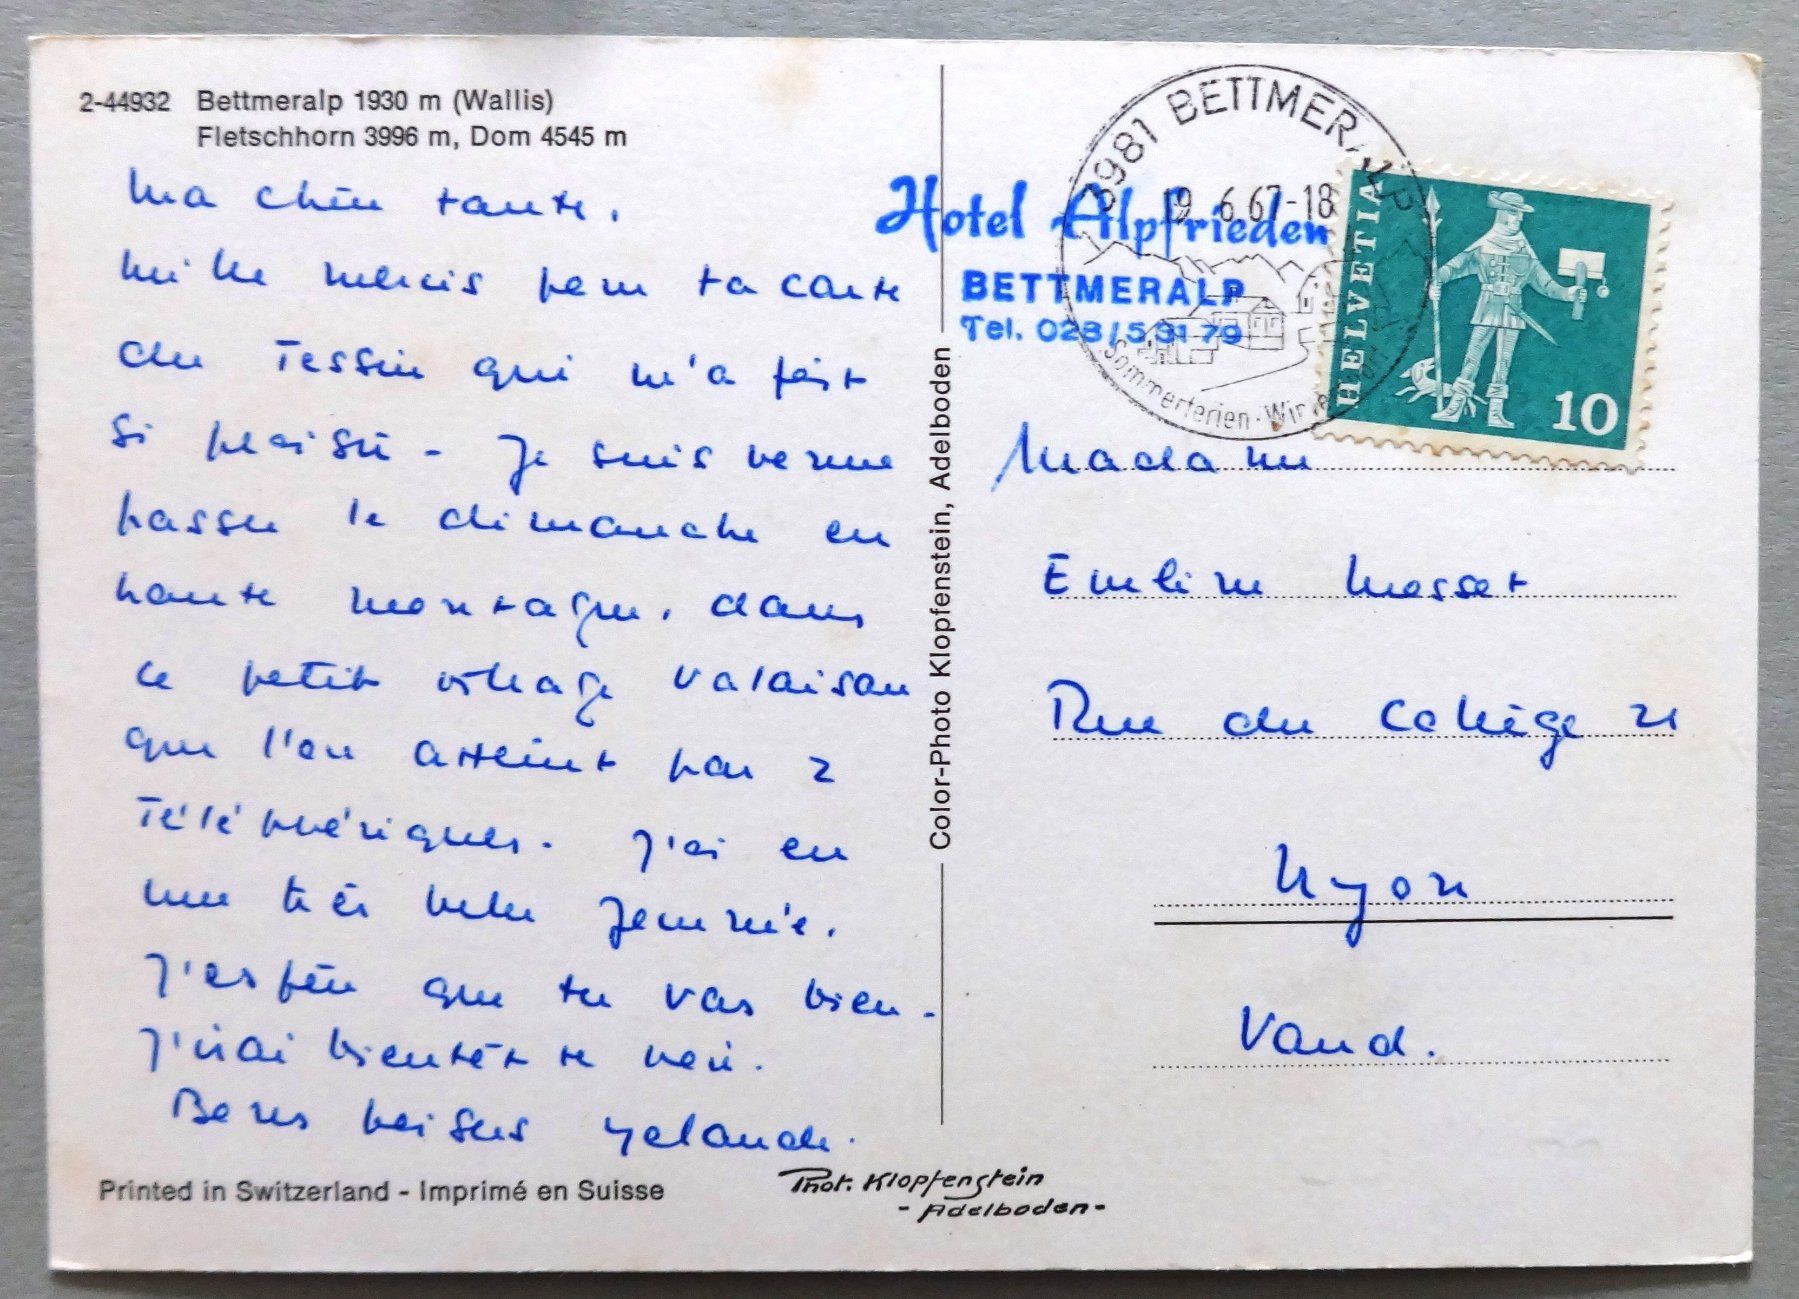 2-44932 Bettmeralp 1930 m (Wallis)
Fletschhorn 3996 m, Dom 4545 m
Ma chère tante,
Mille mercis pour ta carte
du Tessin qui m'a fait
si plaisir - Je suis venue
passer le dimanche en
haute montagne, dans
ce petit village valaisan
que l'on atteint par 2
téléphériques. J'ai eu
une très belle journée.
J'espère que tu vas bien.
J'irai bientôt te voir.
Bons baisers Yolande.
Printed in Switzerland - Imprimé en Suisse
Phot. Klopfenstein
- Adelboden -
Color-Photo Klopfenstein, Adelboden
Hotel Alpfrieden
BETTMERALP
Tel. 028/5 31 79
3981 BETTMERALP
19.6.67-18
Sommerferien · Win
HELVETIA
10
Madame
Emline Mosset
Rue du Collège 21
Nyon
Vaud.